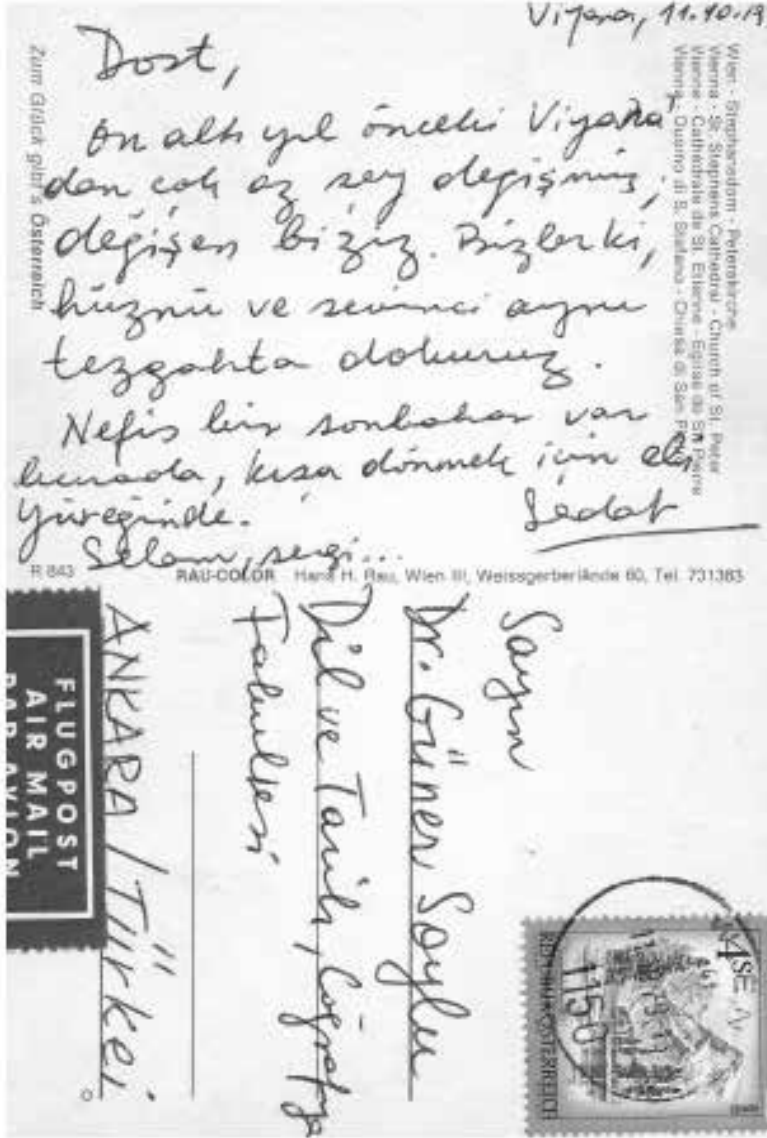 Viyana, 11.10.19
Dost,
On altı yıl önceki Viyana'
dan çok az şey değişmiş,
değişen biziz. Bizler ki,
hüznü ve sevinci aynı
tezgahta dokuruz.
Nefis bir sonbahar var
burada, kışa dönmek için eli
yüreğinde.
Selam, sevgi...
Sedat
Zum Glück gibt's Österreich
Wien - Stephansdom - Peterskirche
Vienna - St. Stephens Cathedral - Church of St. Peter
Vienne - Cathédrale de St. Etienne - Eglise de St. Pierre
Vienna - Duomo di S. Stefano - Chiesa di San
R 843
RAU-COLOR Hans H. Rau, Wien III, Weissgerberlände 60, Tel. 731383
Sayın
Dr. Güner Soylu
Dil ve Tarih, Coğrafya
Fakültesi
ANKARA / Türkei
FLUGPOST
AIR MAIL
PAR AVION
REPUBLIK ÖSTERREICH
1150